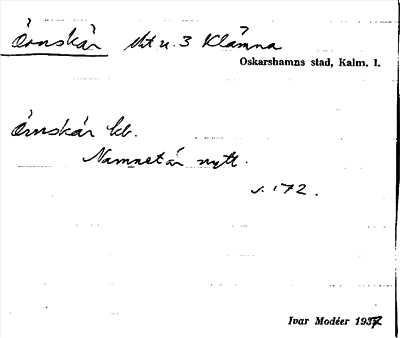 Örnskär skt u. 3 Klämna
Oskarshamns stad, Kalm. l.
Örnskär kb.
Namnet är nytt.
s. 172.
Ivar Modéer 1937